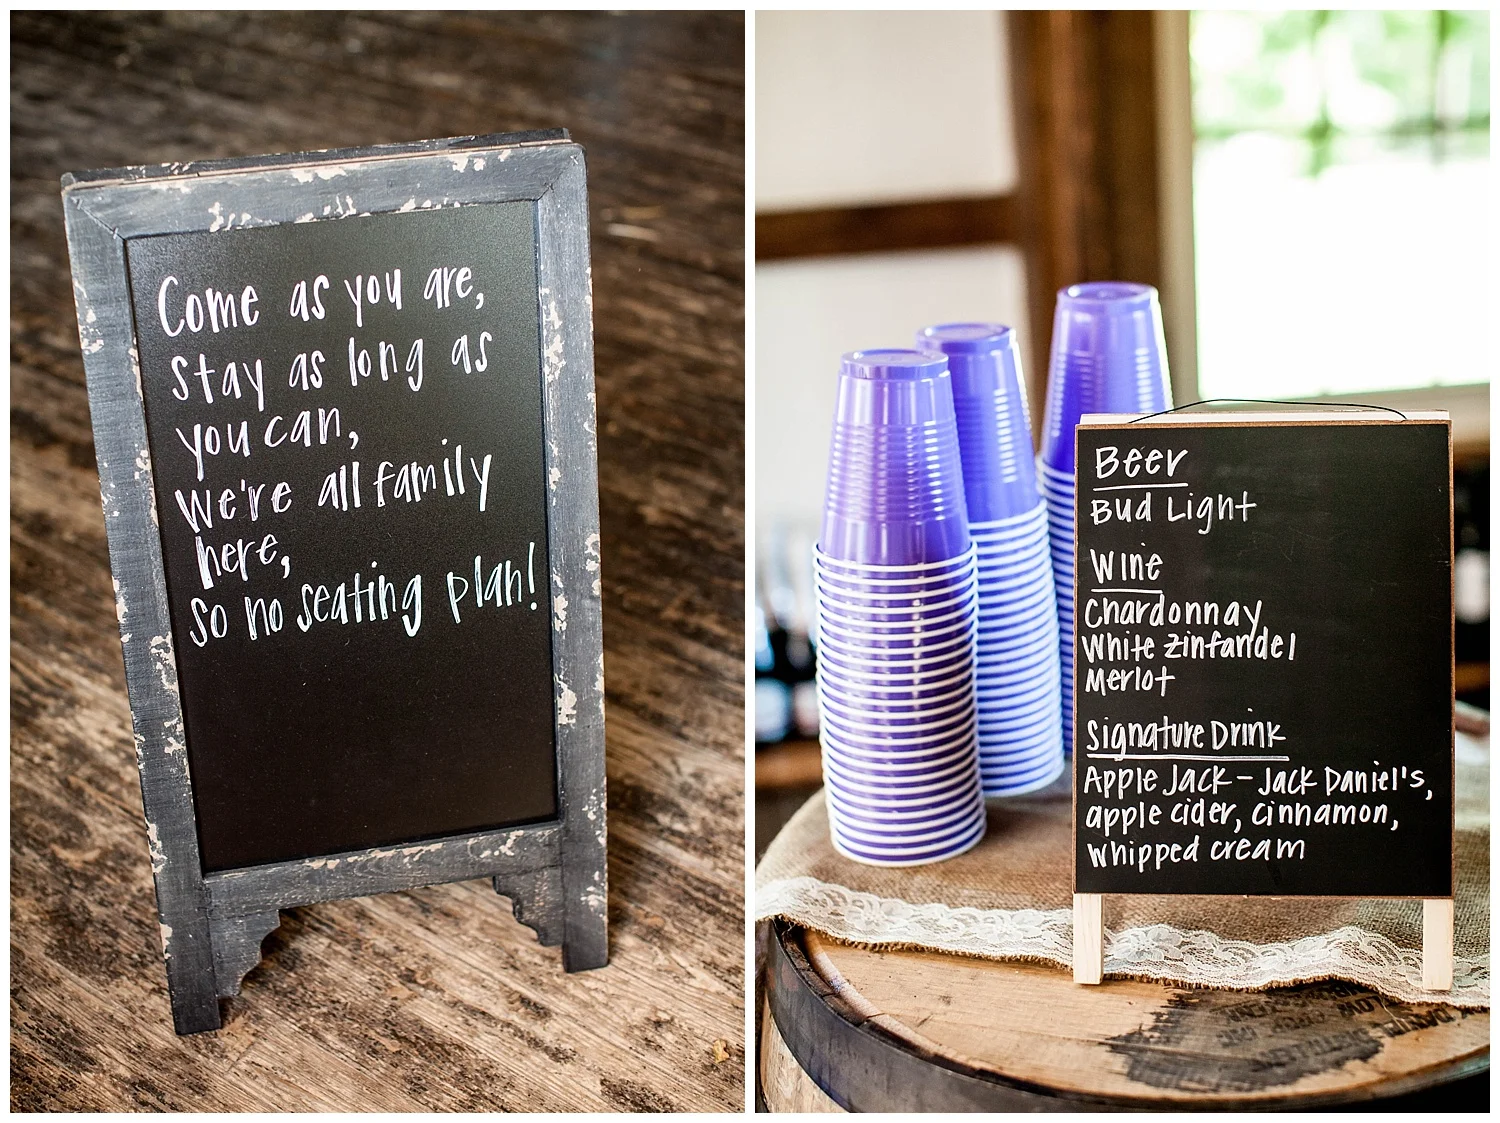 Come as you are,
stay as long as
you can,
we're all family
here,
so no seating plan!
Beer
Bud Light
Wine
Chardonnay
White Zinfandel
Merlot
Signature Drink
Apple Jack - Jack Daniel's,
apple cider, cinnamon,
whipped cream